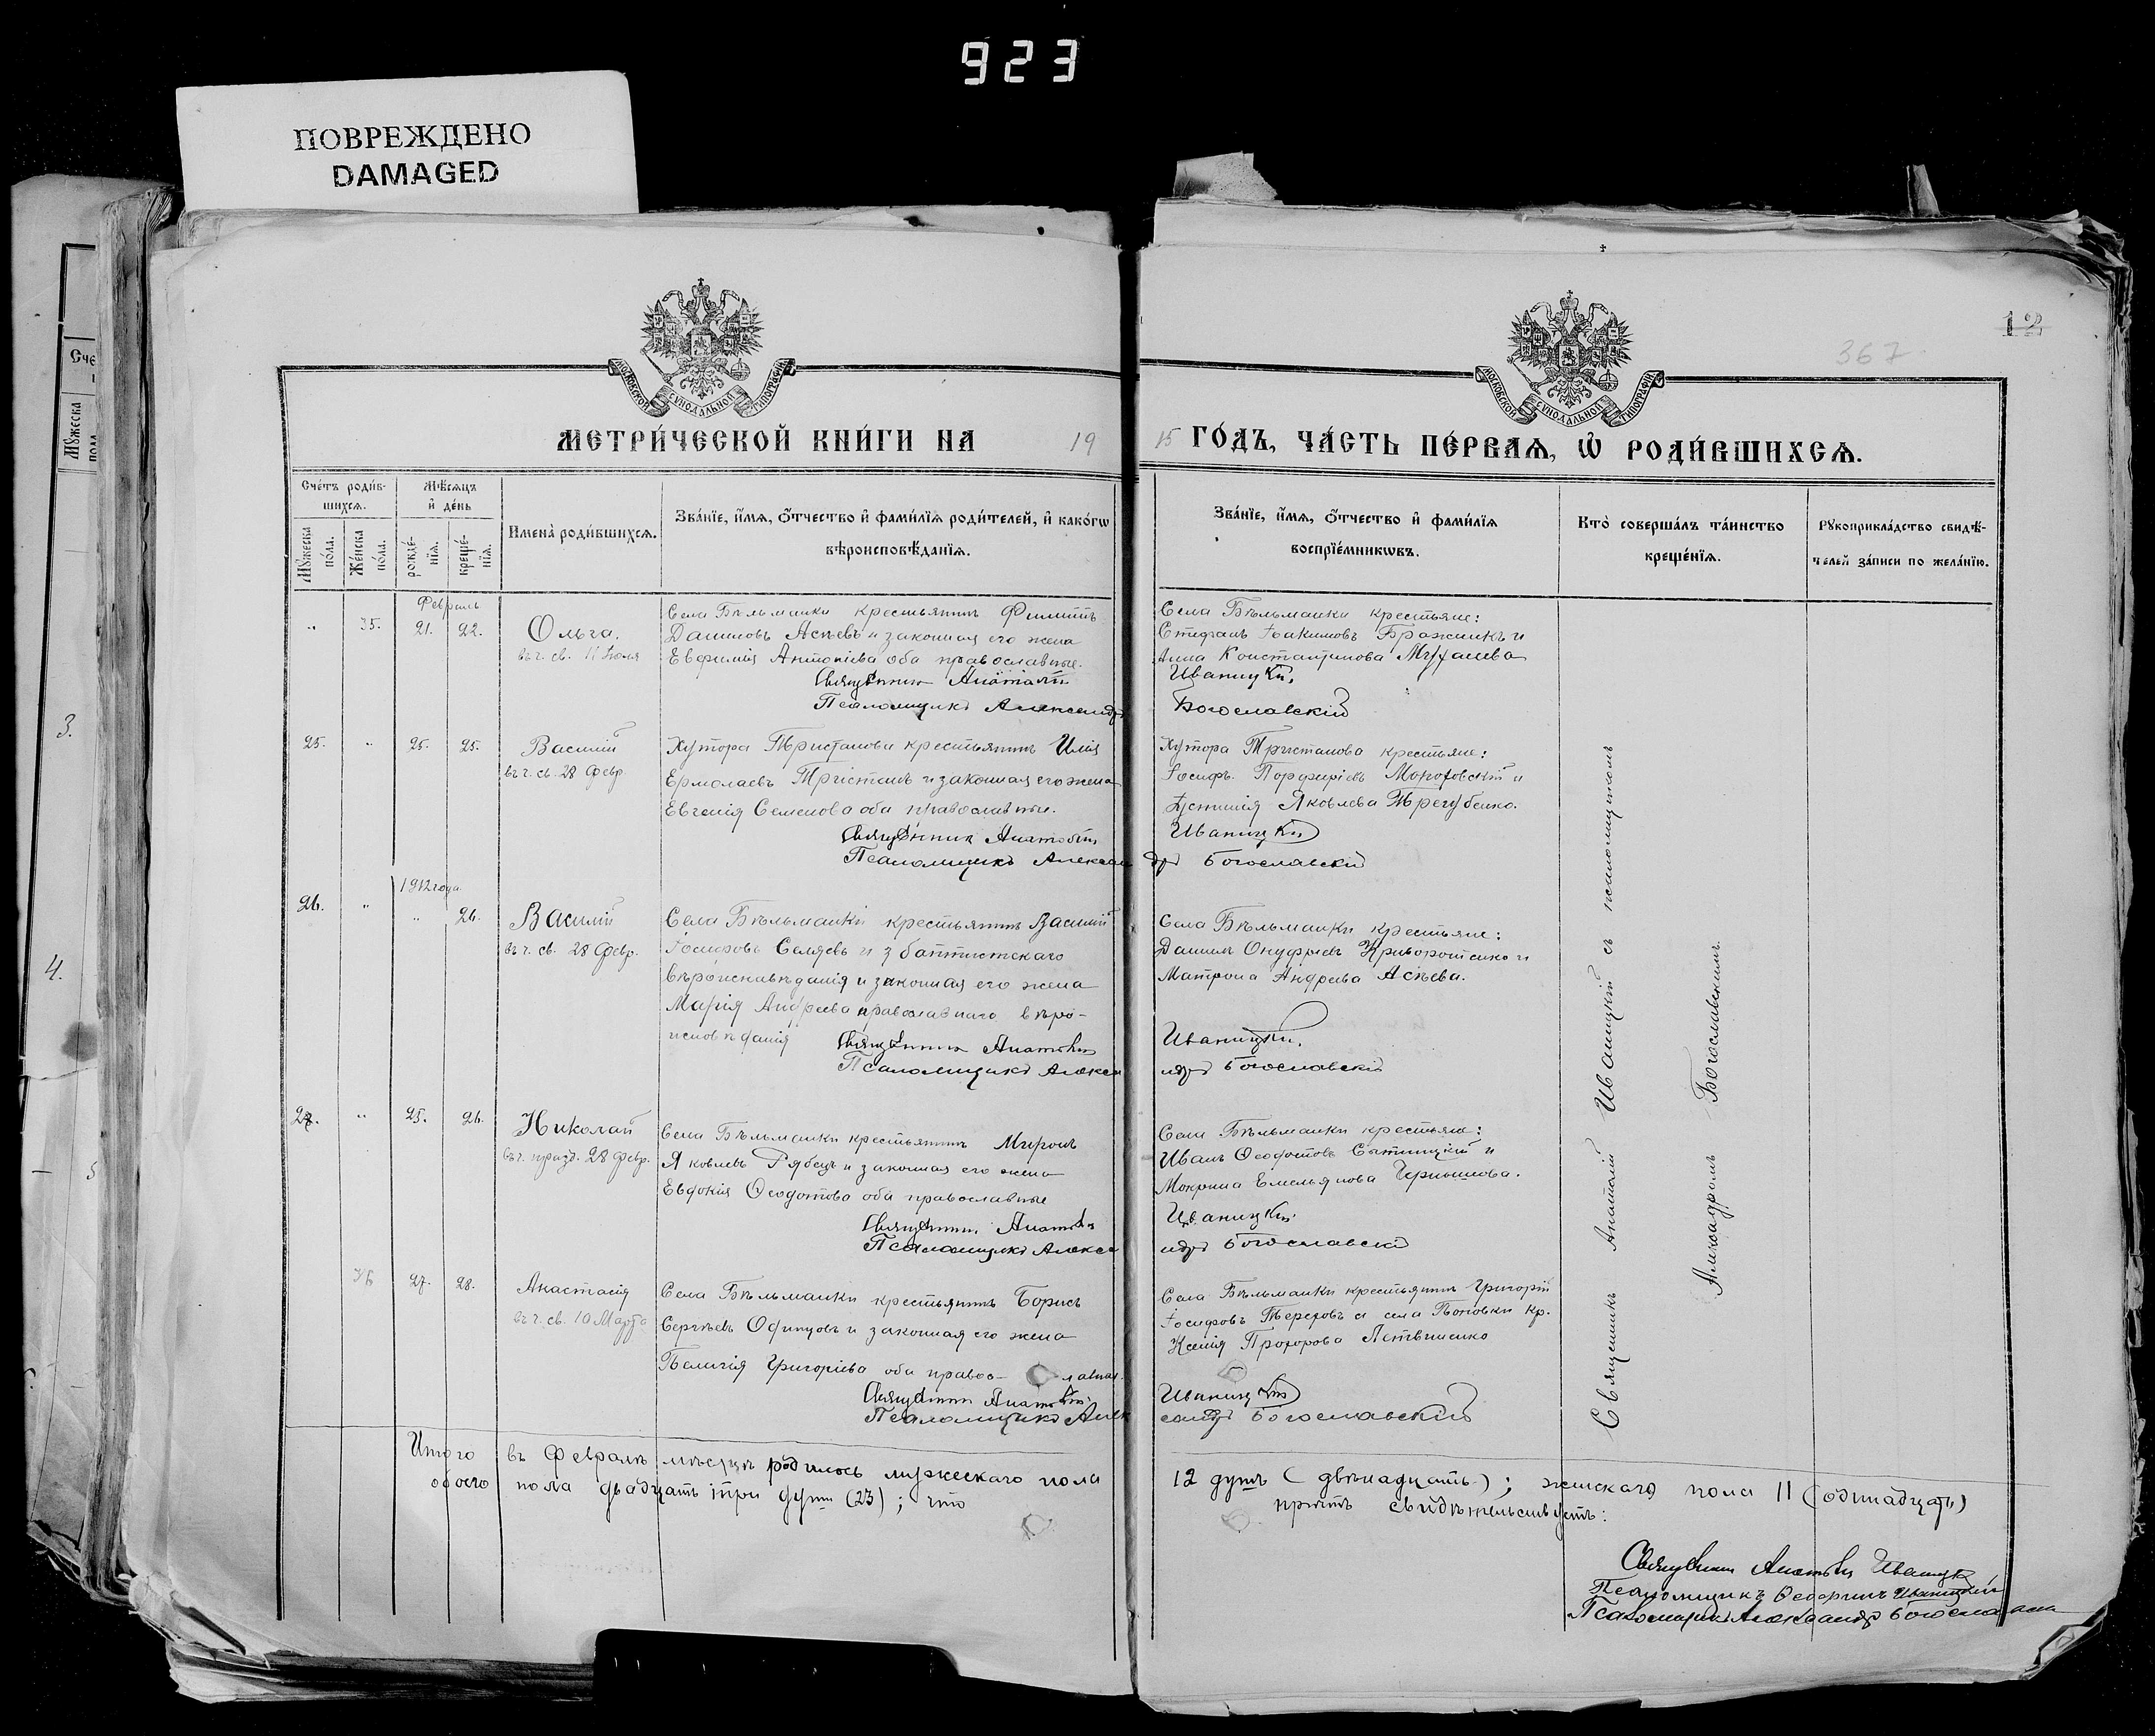 923
ПОВРЕЖДЕНО
DAMAGED
12
367
МОСКОВСКОЙ СУНОДАЛЬНОЙ ТИПОГРАФІИ
МОСКОВСКОЙ СУНОДАЛЬНОЙ ТИПОГРАФІИ
МЕТРИ́ЧЕСКОЙ КНИ́ГИ НА 19
15 ГО́ДЪ, ЧА́СТЬ ПЕ́РВАѦ, Ѡ҆ РОДИ́ВШИХСѦ.
Сче́тъ роди́в-
шихсѧ.
Мꙋ́жеска
по́ла.
Же́нска
по́ла.
Мѣ́сѧцъ
и҆ де́нь
рожде́-
нїѧ.
креще́-
нїѧ.
И҆мена̀ роди́вшихсѧ.
Зва́нїе, и҆́мѧ, ѻ҆́тчество и҆ фами́лїѧ роди́телей, и҆ како́гѡ
вѣроисповѣ́данїѧ.
Зва́нїе, и҆́мѧ, ѻ҆́тчество и҆ фами́лїѧ
воспрїе́мникѡвъ.
Кто̀ соверша́лъ та́инство
креще́нїѧ.
Рꙋкоприкла́дство свидѣ́-
телей за́писи по жела́нїю.
Февраль
" 35. 21. 22. Ольга.
въ ч. св. 11 Іюля
Села Бѣльманки крестьянинъ Филиппъ
Данииловъ Асѣевъ и законная его жена
Евфимія Антоніева оба православные.
Священникъ Анатолій
Псаломщикъ Александръ
Села Бѣльманки крестьяне:
Стефанъ Іоакимовъ Бражникъ и
Анна Константинова
Иваницкій.
Богославскій
25. " 25. 25. Василій
въ ч. св. 28 Февр.
Хутора Тристанова крестьянинъ Илія
Ермолаевъ Тристанъ и законная его жена
Евгенія Семенова оба православные.
Священникъ Анатолій
Псаломщикъ Алексан
Хутора Тристанова крестьяне:
Іосифъ Порфиріевъ Монотовскій и
Іустинія Яковлева Трегубенко.
Иваницкій
дръ Богославскій
1912 года
26. " " 26. Василій
въ ч. св. 28 Февр.
Села Бѣльманки крестьянинъ Василій
Іосифовъ Селяевъ и з баптистскаго
вѣроисповѣданія и законная его жена
Марія Андреева православнаго вѣро-
исповѣданія
Священникъ Анатолій
Псаломщикъ Алекса
Села Бѣльманки крестьяне:
Даниилъ Онуфріевъ Криворотенко и
Матрона Андреева Асѣева.
Иваницкій.
ндръ Богославскій
27. " 25. 26. Николай
въ ч. празд. 28 Февр.
Села Бѣльманки крестьянинъ Миронъ
Яковлевъ Рябецъ и законная его жена
Евдокія Ѳеодотова оба православные
Священникъ Анатолій
Псаломщикъ Алекса
Села Бѣльманки крестьяне:
Иванъ Ѳеодотовъ Сытницкій и
Мокрина Емельянова Чернышова.
Иваницкій
ндръ Богославскій
36 27. 28. Анастасія
въ ч. св. 10 Марта
Села Бѣльманки крестьянинъ Борисъ
Сергѣевъ Одинцовъ и законная его жена
Пелагія Григоріева оба правос- лавные.
Священникъ Анатолій
Псаломщикъ Алек
Села Бѣльманки крестьянинъ Григорій
Іосифовъ Тереховъ и села Поповки кр.
Ксенія Прохорова Литвиненко
Иваницкій
сандръ Богославскій
Священникъ Анатолій Иваницкій съ псаломщикомъ
Александромъ Богославскимъ.
Итого въ Февралѣ мѣсяцѣ родилось мужескаго пола 12 душъ (двѣнадцать); женскаго пола 11 (одинадцать)
обоего пола двадцать три души (23); что причтъ свидѣтельствуетъ:
Священникъ Анатолій Иваницкій
Псаломщикъ Ѳеофилъ Иваницкій
Псаломщикъ Александръ Богославскій